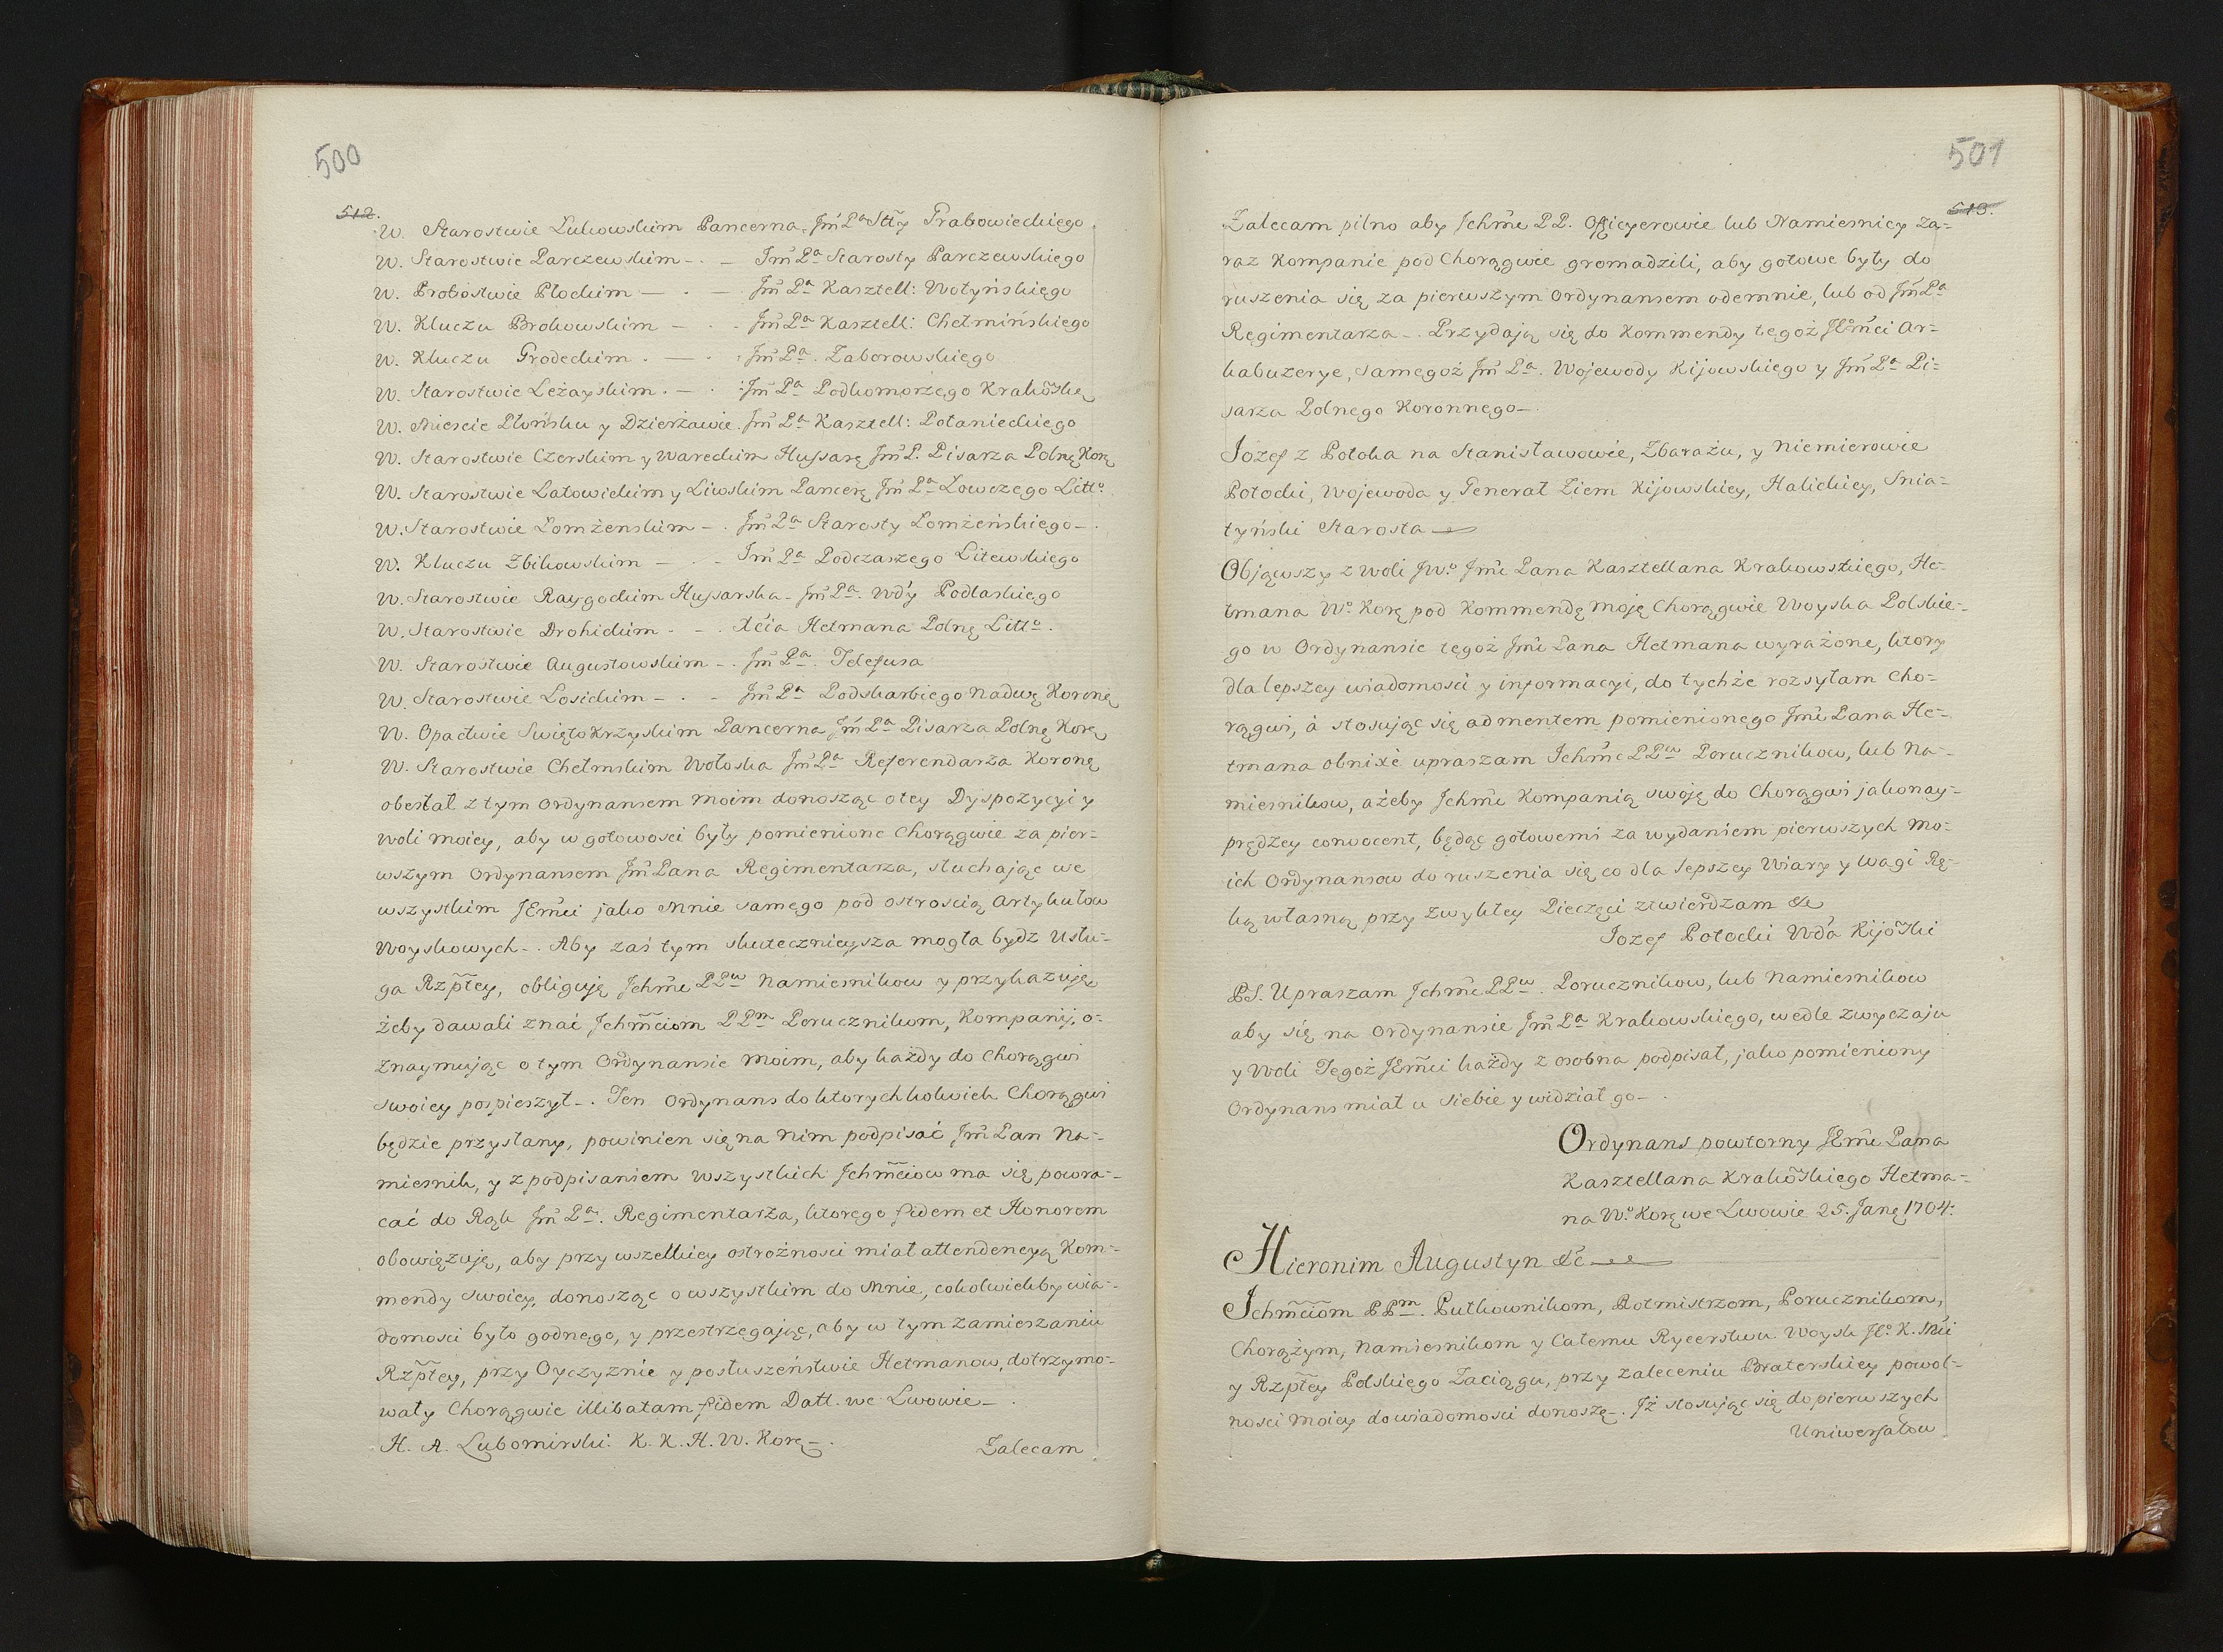 500
512.
W. Starostwie Lukowskim Pancerna Jm̃ Pa Stty Grabowieckiego
W. Starostwie Parczewskim -. - Jm̃ Pa Starosty Parczewskiego
W. Probostwie Plockim - . - Jm̃ Pa Kasztell: Wołyńskięgo
W. Kluczu Brokowskim - . - Jm̃ Pa Kasztell: Chełmińskiego
W. Kluczu Grodeckim . - . : Jm̃ Pa. Zaborowskiego
W. Starostwie Leżayskim . - . : Jm̃ Pa Podkomorzęgo Krakõskę
W. Miescie Płońsku y Dzierżawie. Jm̃ Pa Kasztell: Połanieckiego
W. Starostwie Czerskim y Wareckim Hussarę Jm̃ P. Pisarza Polnę Korę
W. Starostwie Latowickim y Liwskim Pancerę Jm̃ Pa Łowczego Litto
W. Starostwie Lomżenskim -. Jm̃ Pa Starosty Lomżeńskiego -.
W. Kluczu Zbikowskim - . - Jm̃ Pa Podczaszego Litewskiego
W. Starostwie Raygockim Hussarska - Jm̃ Pa. Wdy Podlaskiego
W. Starostwie Drohickim . - . Xcia Hetmana Polnę Litto.
W. Starostwie Augustowskim -. Jm̃ Pa. Telefusa
W. Starostwie Losickim - . - Jm̃ Pa Podskarbiego Nadwę Koronę
W. Opactwie Swięto Krzyskim Pancerna Jm̃ Pa Pisarza Polnę Korę
W. Starostwie Chełmskim Wołoska Jm̃ Pa Referendarza Koronę
obesłał z tym Ordynansem moim donosząc o tey Dyspozycyi y
woli moiey, aby w gotowosci były pomienione Chorągwie za pier-
wszym Ordynansem Jm̃ Pana Regimentarza, słuchając we
wszystkim JEm̃ci jako Mnie samęgo pod ostroscią Artykułow
Woyskowych -. Aby zaś tym skutecznieysza mogła bydz Usłu-
ga Rzp̃tey, obliguję Jchm̃c PPw Namiesnikow y przykazuję
żeby dawali znać Jchm̃ciom PPm Porucznikom, Kompanij, o-
znaymując o tym Ordynansie moim, aby każdy do Chorągwi
swoiey pospieszył -. Ten Ordynans do ktorychkolwiek Chorągwi
będzie przysłany, powinien się na nim podpisać Jm̃ Pan Na-
miesnik, y z podpisaniem wszystkich Jchm̃ciow ma się powra-
cać do Rąk Jm̃ Pa. Regimentarza, ktoręgo fidem et Honorem
obowięzuję, aby przy wszelkiey ostrożnosci miał attendencyą Kom-
mendy swoiey, donosząc o wszystkim do Mnie, cokolwiekby wia-
domosci było godnęgo, y przestrzęgając, aby w tym zamieszaniu
Rzp̃tey, przy Oyczyznie y posłuszeństwie Hetmanow, dotrzymo-
wały Chorągwie illibatam fidem Datt. we Lwowie -.
H. A. Lubomirski: K. K. H. W. Korę -.
Zalecam
501
513.
Zalecam pilno aby Jchm̃c PP. Officyerowie lub Namiesnicy za-
raz Kompanie pod Chorągwie gromadzili, aby gotowe były do
ruszenia się za pierwszym Ordynansem odemnie, lub od Jm̃ Pa
Regimentarza -. Przydają się do Kommendy tęgoż JEm̃ci Ar-
kabuzerye, samęgoż Jm̃ Pa. Wojewody Kijowskiego y Jm̃ Pa Pi-
sarza Polnego Koronnego -.
Jozef z Potoka na Stanisławowie, Zbarażu, y Niemierowie
Potocki, Wojewoda y Generał Ziem Kijowskiey, Halickiey, Snia-
tyński Starosta
Objąwszy z woli JWo Jm̃c Pana Kasztellana Krakowskiego, He-
tmana Wo. Korę pod Kommendę moję Chorągwie Woyska Polskie-
go w Ordynansie tęgoż Jm̃c Pana Hetmana wyrażone, ktory
dla lepszey wiadomosci y informacyi, do tychże rozsyłam Cho-
rągwi, á stosując się ad mentem pomienionęgo Jm̃c Pana He-
tmana obnixè upraszam Jchm̃c PPw Porucznikow, lub Na-
miesnikow, ażeby Jchm̃c Kompanią swoję do Chorągwi jakonay-
prędzey convocent, będąc gotowemi za wydaniem pierwszych mo-
ich Ordynansow do ruszenia się co dla lepszey Wiary y wagi Rę-
ką własną przy zwykłey Pieczęci ztwierdzam &
Jozef Potocki Wda Kijõski
PS. Upraszam Jchm̃c PPw. Porucznikow, lub Namiesnikow
aby się na Ordynansie Jm̃ Pa Krakowskiego, wedle zwyczaju
y Woli Tęgoż JEm̃ci każdy z osobna podpisał, jako pomieniony
Ordynans miał u siebie y widział go -.
Ordynans powtorny JEm̃c Pana
Kasztellana Krakõskiego Hetma-
na Wo. Korę we Lwowie 25. Janę 1704.
Hieronim Augustyn &c
Jchm̃ciom PPm. Pułkownikom, Rotmistrzom, Porucznikom,
Chorążym, Namiesnikom y Całemu Rycerstwu Woysk JEo. K. Mci
y Rzp̃tey Polskięgo Zaciągu, przy zaleceniu Braterskiey powol-
nosci moiey do wiadomosci donoszę -. Jż stosując się do pierwszych
Uniwersałow